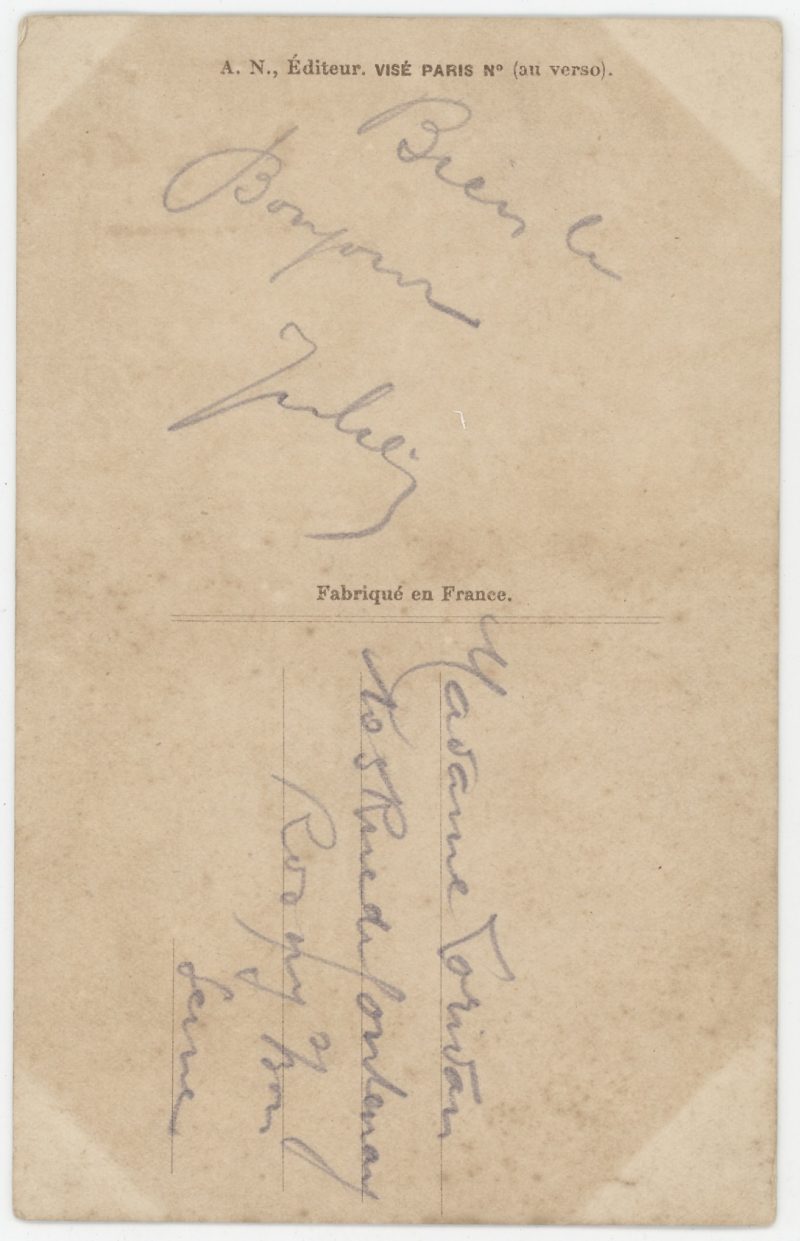 A. N., Éditeur. VISÉ PARIS Nº (au verso).
Bien le
Bonjour
Fabriqué en France.
Madame
Rue de Fontenay
Rosny Bois
Seine